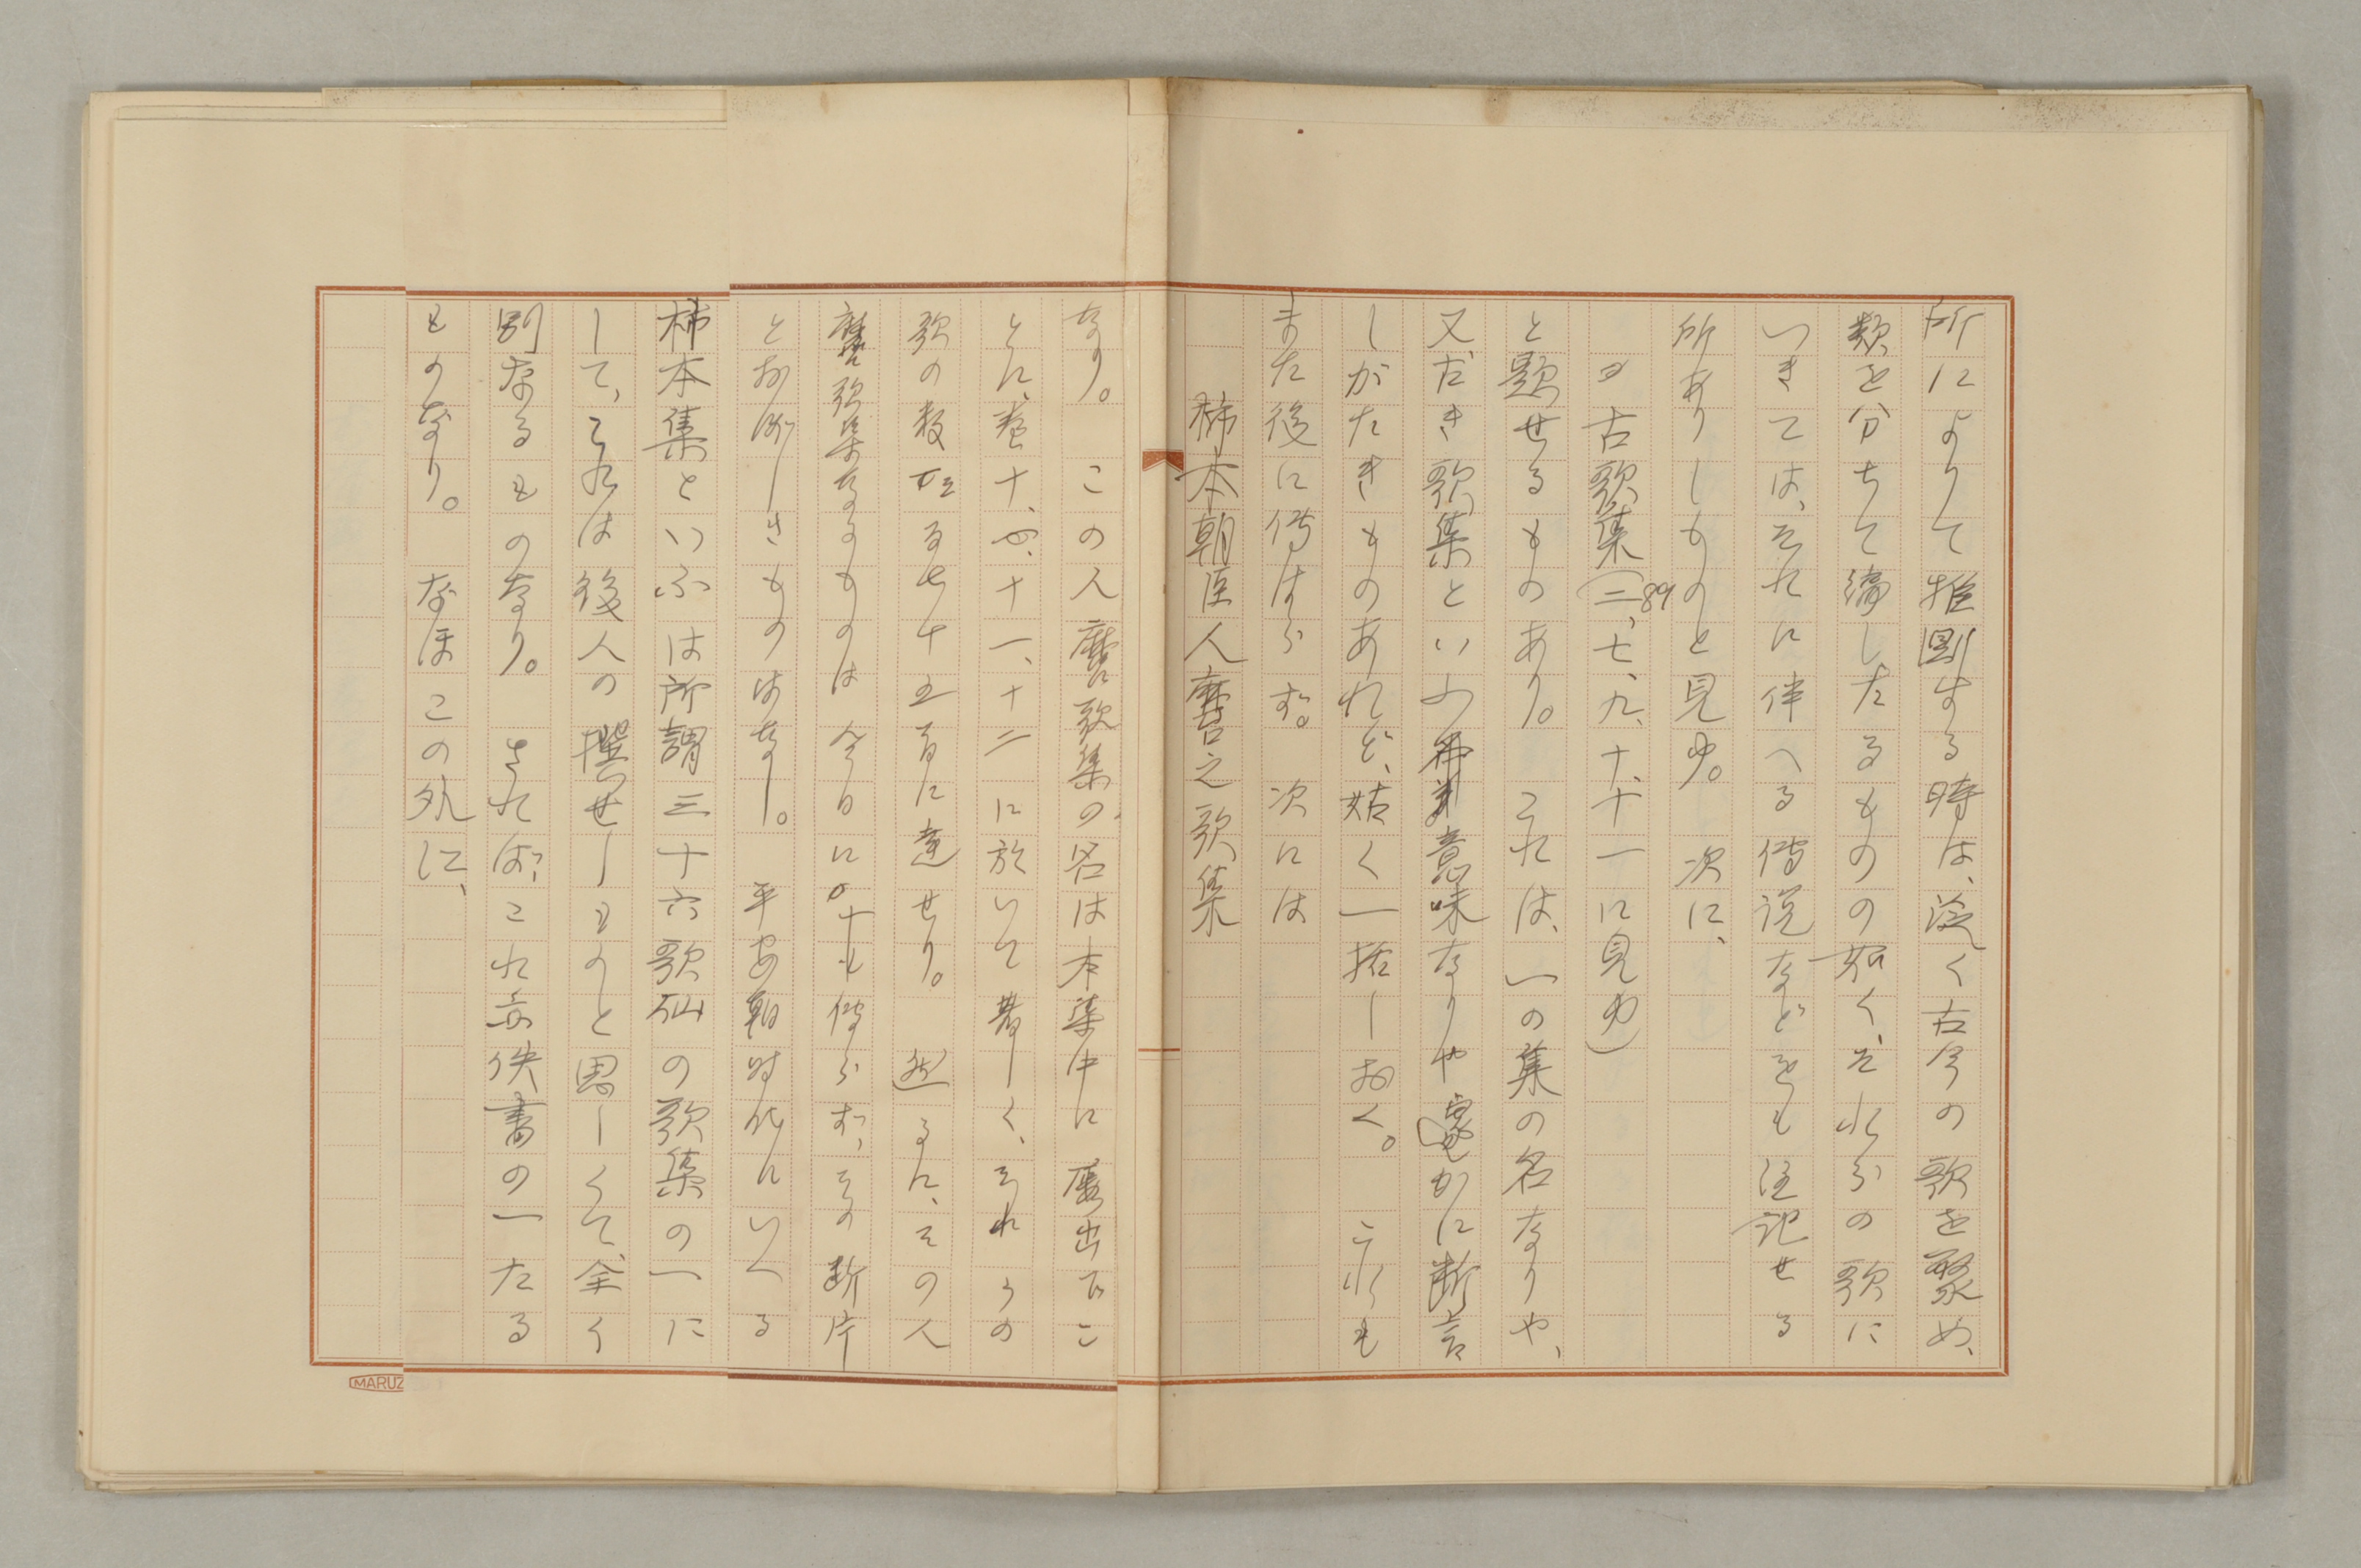 所によりて推測する時は、汎く古今の歌を聚め、
類を分ちて編したるものの如く、それらの歌に
つきては、それに伴へる傳説などをも注記せる
所ありしものと見ゆ。次に、
古歌集(二、89七、九、十、十一に見ゆ)
と題せるものあり。これは、一の集の名なりや、
又古き歌集といふ意味なりや遽かに断言
しがたきものあれど、姑く一括しおく。これも
また後に傳はらず。次には
柿本朝臣人麿之歌集
なり。この人麿歌集の名は本集中に屡出でこ
とに、巻十、十一、十二に於いて著しく、それらの
歌の数在る七十五首に達せり。然るに、その人
麿歌集なるものは今日に傳らず、その断片
とおぼしきものはなし。平安朝時代にいへる
柿本集といふは所謂三十六歌仙の歌集の一に
して、これは後人の撰せしものと思しくて、全く
別なるものなり。されば、これ亦佚書の一たる
ものなり。なほこの外に、
MARUZ